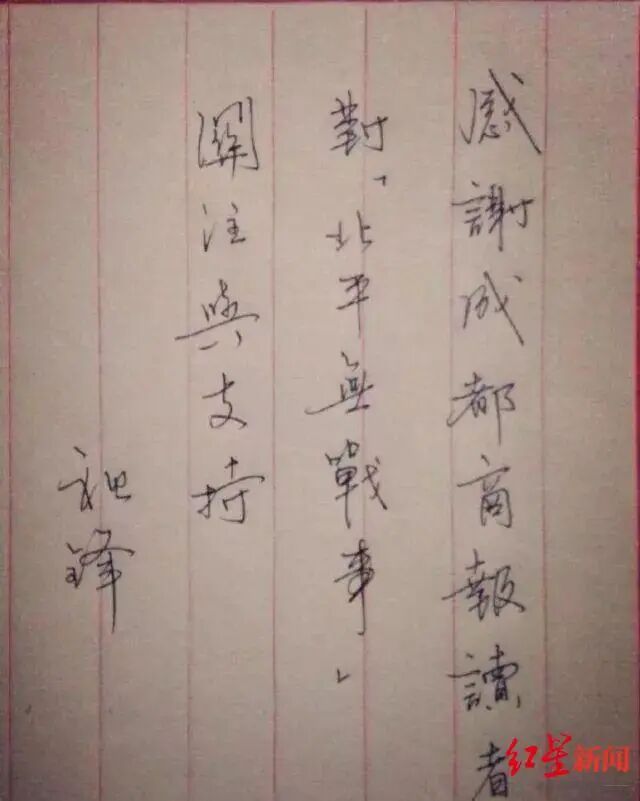 感謝成都商報讀者
對「北平無戰事」
關注與支持
祖鋒
红星新闻